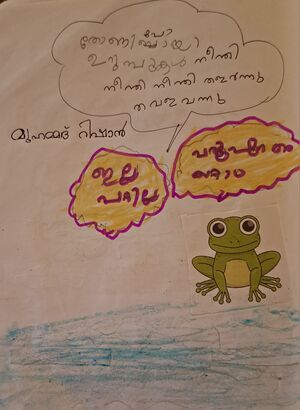 പോ
തോണി
ഉറുമ്പുകൾ നീന്തി
നീന്തി നീന്തി തളർന്നു
തവള വന്നു
മുഹമ്മദ് റിഷാൻ
ഇല്ല
പറ്റില്ല